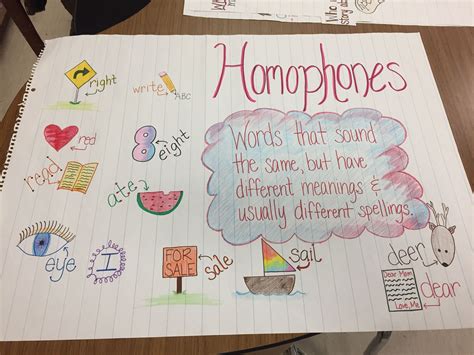 Homophones
Words that sound
the same, but have
different meanings &
usually different spellings.
right
write
ABC
red
read
8
eight
ate
eye
I
FOR
SALE
sale
sail
deer
Dear Mom
Love, Me
dear